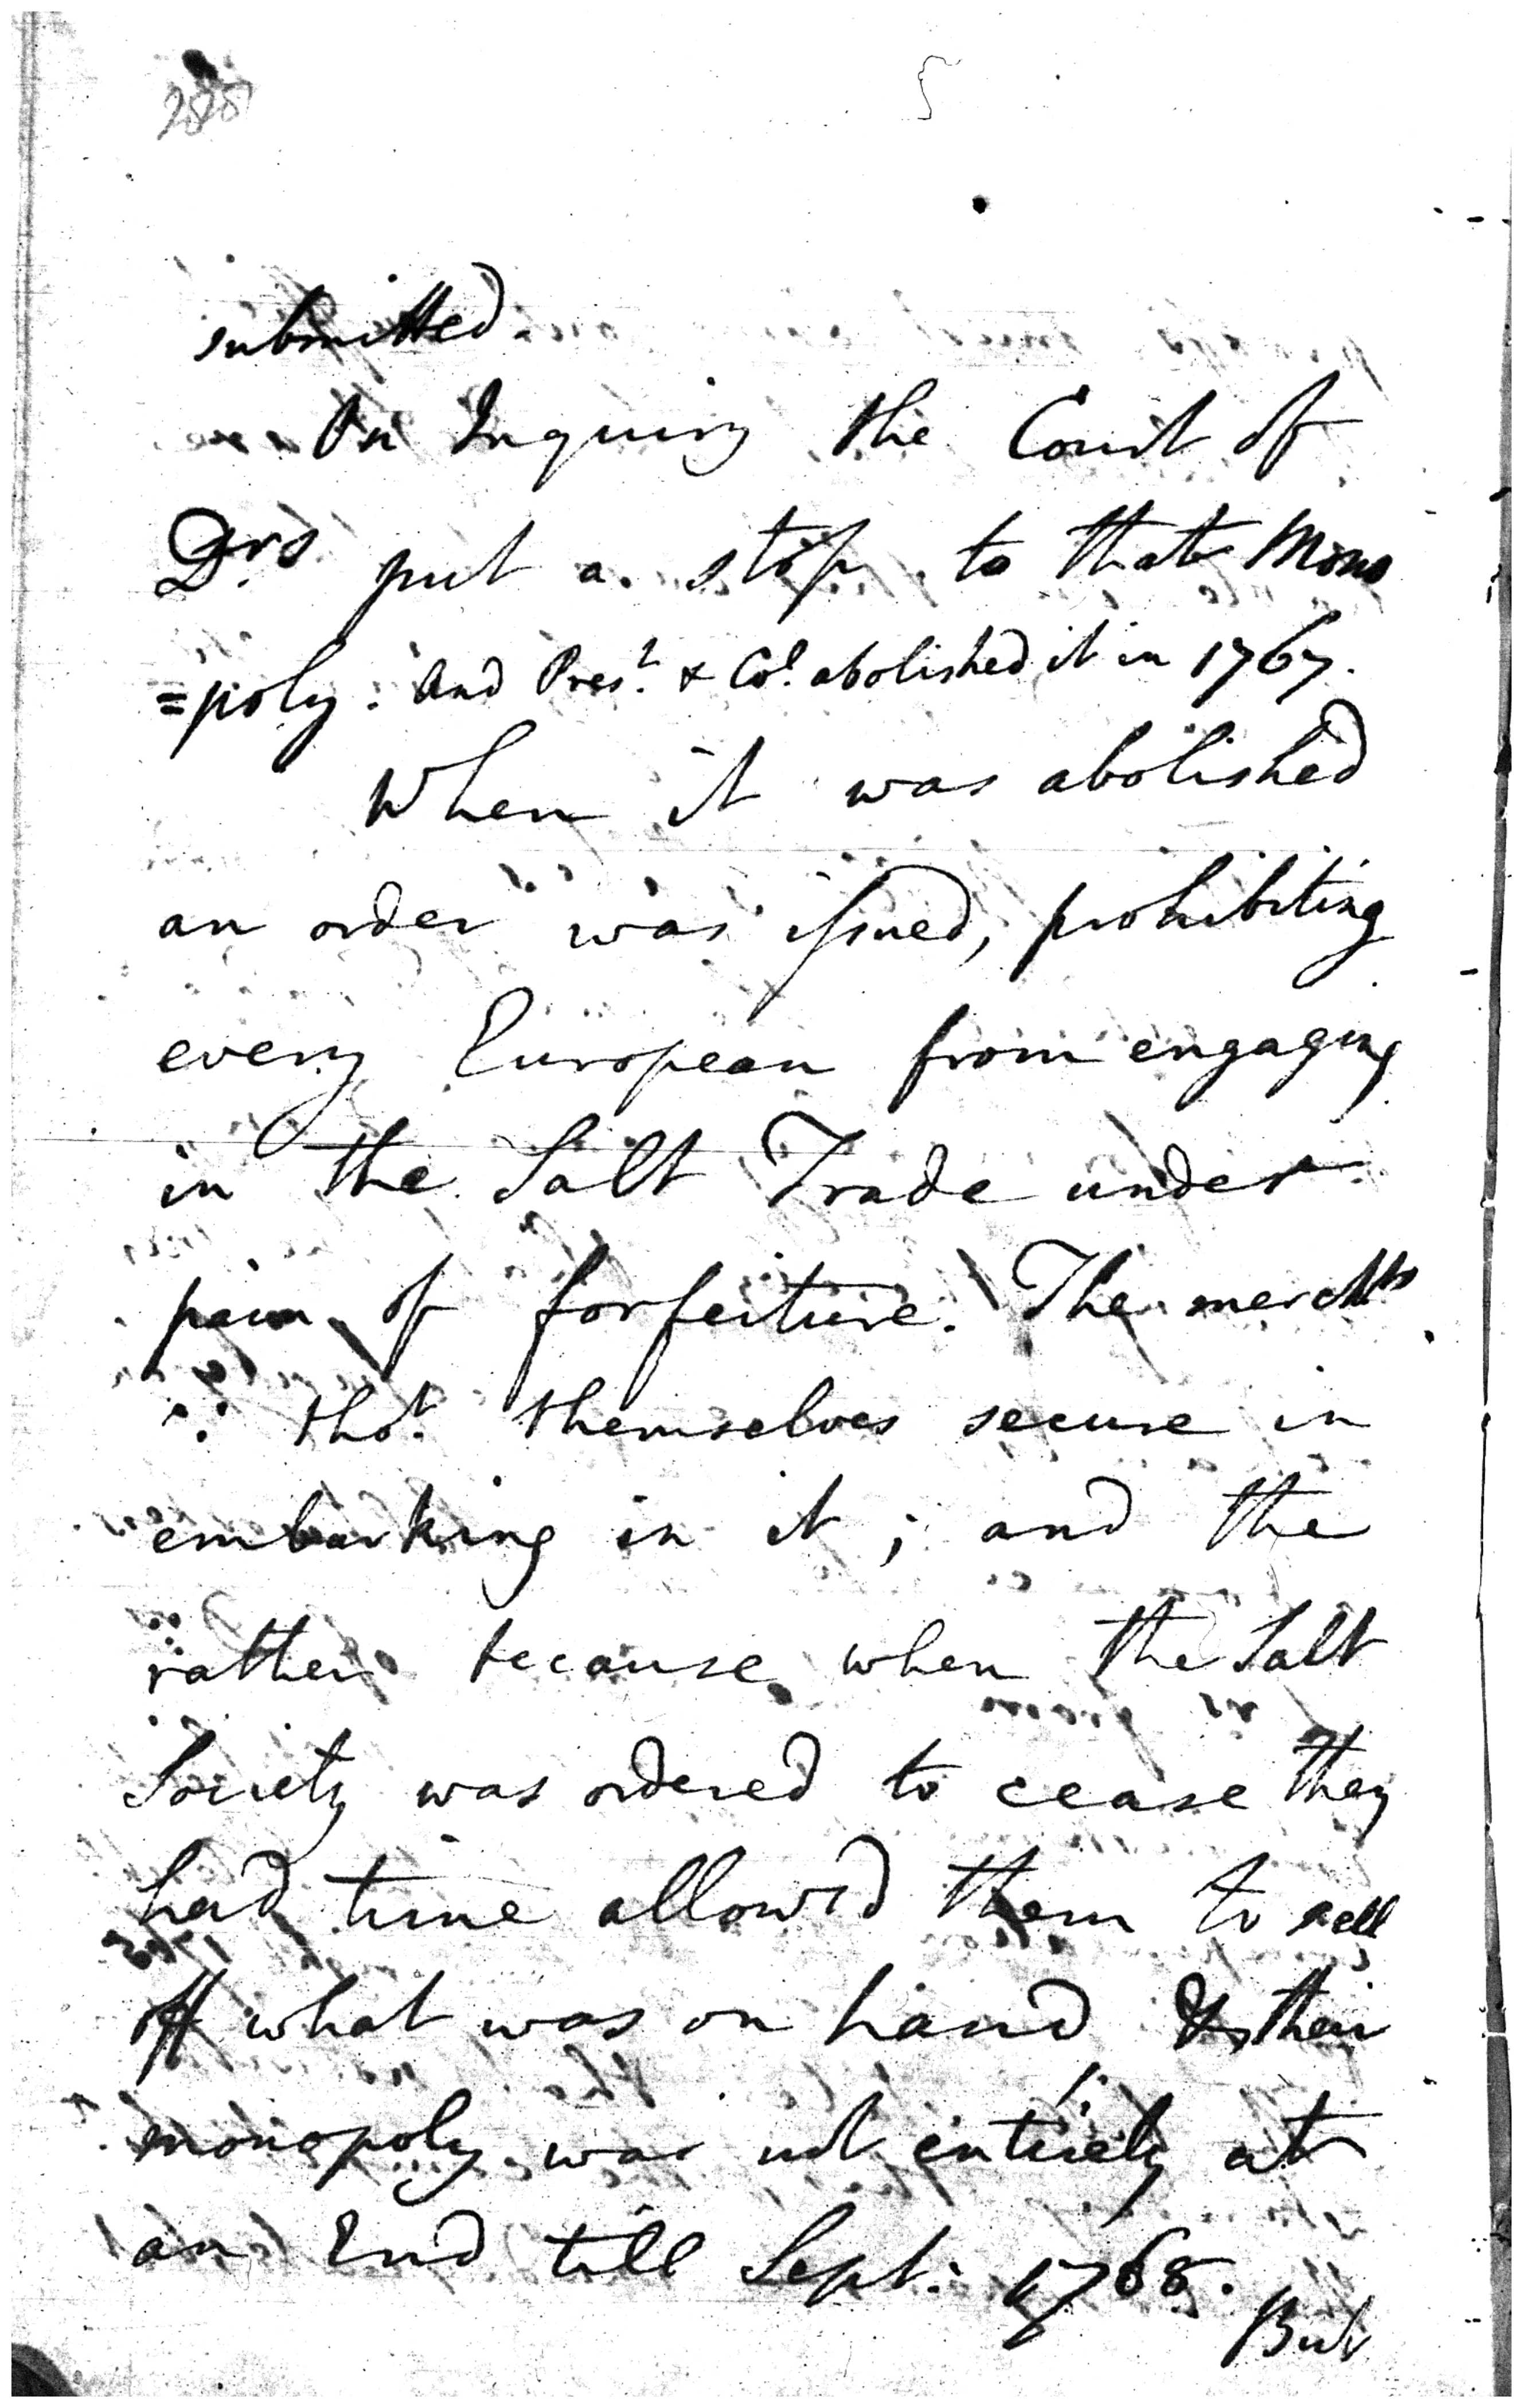 submitted.
On Inquiry the Court of
Drs put a stop to that Mono
=poly: And Prest. & Col. abolished it in 1767.
When it was abolished
an order was issued, prohibiting
every European from engaging
in the Salt Trade under
pain of forfeiture. The merchts
∵ thot. themselves secure in
embarking in it; and the
rather because when the Salt
Society was ordered to cease they
had time allowed them to sell
off what was on hand & their
monopoly was not entirely at
an End till Sept: 1768.
But